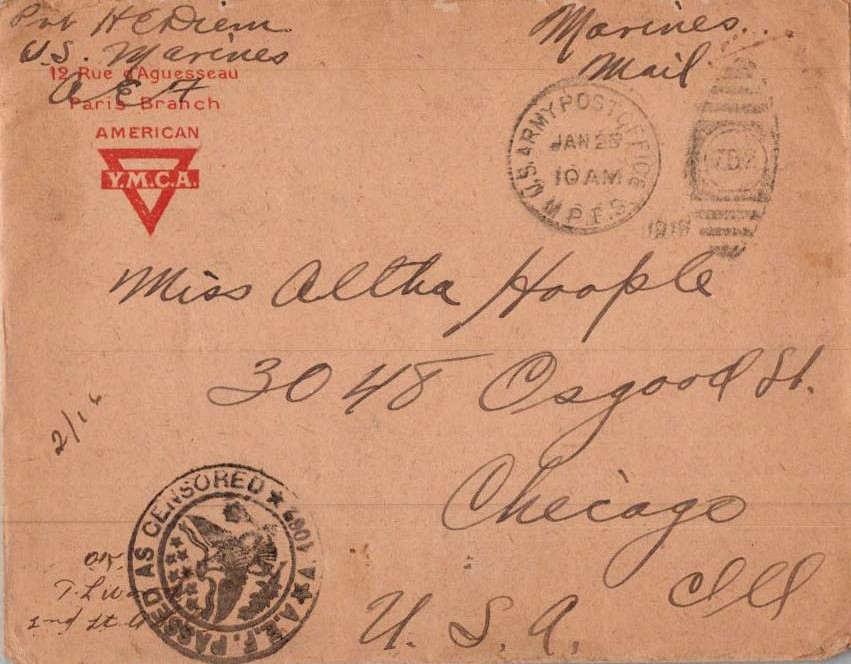 Pvt HCDiem
U.S. Marines
12 Rue d'Aguesseau
A E F
Paris Branch
AMERICAN
Y.M.C.A.
Marines
Mail
U.S. ARMY POST OFFICE
JAN 25
10 AM
M.P.E.S.
1919
702
Miss Altha Hoople
3048 Osgood St.
Chicago
Ill
U. S. A.
2/16
A.E.F. PASSED AS CENSORED
OK.
2nd Lt.